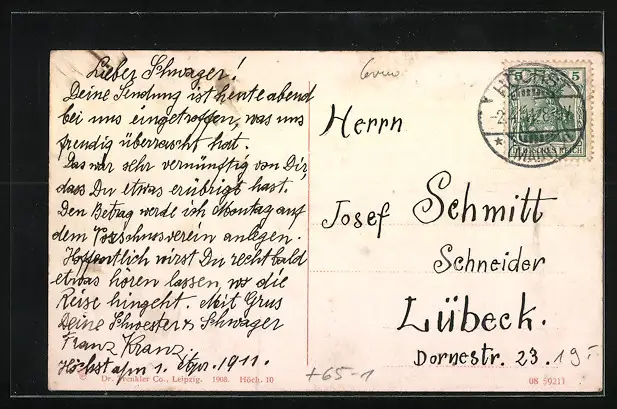 Lieber Schwager!
Deine Sendung ist heute abend
bei uns eingetroffen, was uns
freudig überrascht hat.
Das war sehr vernünftig von Dir,
dass Du etwas erübrigt hast.
Den Betrag werde ich Montag auf
dem Vorschussverein anlegen.
Hoffentlich wirst Du recht bald
etwas hören lassen, wo die
Reise hingeht. Mit Grus
Deine Schwester & Schwager
Franz Kranz.
Höchst a/m 1. Apr. 1911.
Herrn
Josef Schmitt
Schneider
Lübeck.
Dornestr. 23.
19.-
+65-1
HÖCHST
(MAIN)
5 5
Dr. Trenkler Co., Leipzig. 1908. Höch. 10
08 59211